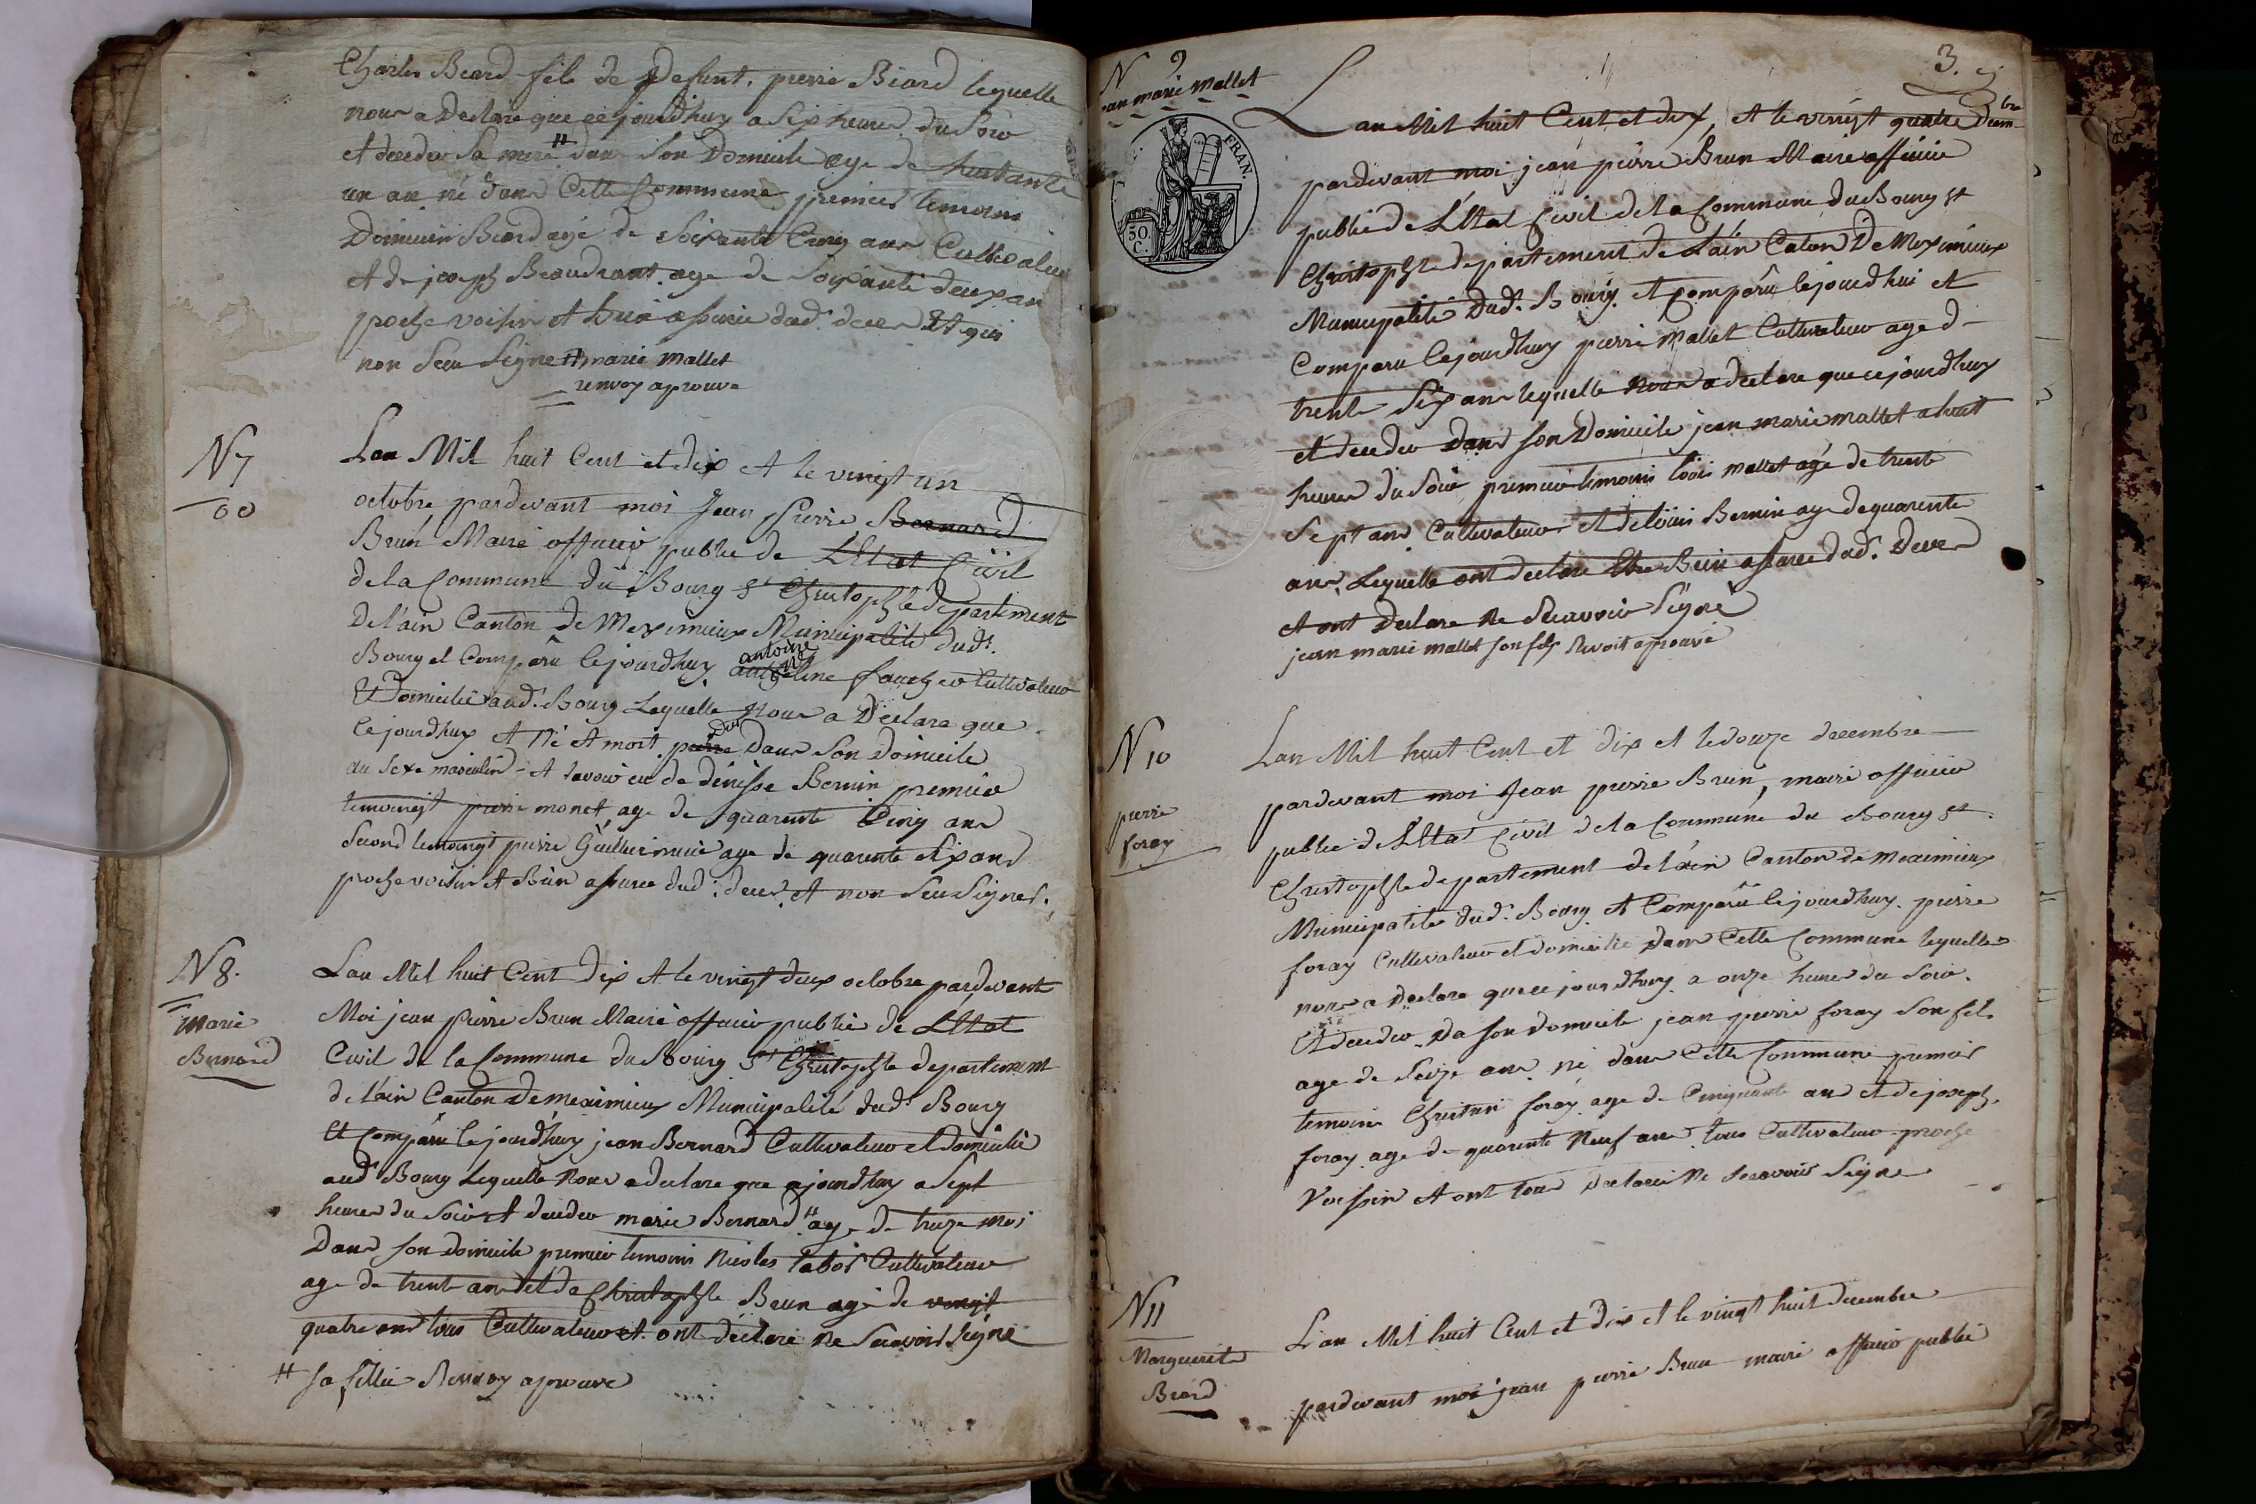 Charles Beard fils de Defunt pierre Biard lequelle
nous a Declare que cejourdhuy a Six heure du Soir
et deceder Sa mere # dans Son Domicile age de huitante
un an né dans Cette Commune premier temoin
Domicien Biard agé de Soixante Cinq ans Cultivateur
et de joseph Beaudrant age de Soixante deux an
proche voisin et bien assurie dud. deces Et qui
non Seu Signe # marie Mallet
renvoy aprouve
N 7
00
Lan Mil huit Cent et dix et le vingt un
octobre pardevant moi Jean Pierre Bernard
Brun Maire officier public de LEtat Civil
de la Commune du Bourg St Christophle departement
De l'ain Canton de Meximieux Municipalité dud.
Bourg et Comparu cejourdhuy antoine faucher Cultivateur
Et Domicilié aud. Bourg Lequelle Nous a Declare que
Cejourdhuy et né et mort dans Son Domicile
du Sexe masculin et lavoir eu de dénisse Bernin premier
temoingt pierre monet age de quarente Cinq ans
Second temoingt pierre Guillermier age de quarente Six ans
proche voisin et Bien assuree dud. deces et non Seu Signer.
N 8.
Marie
Bernard
Lan Mil huit Cent Dix et le vingt deux octobre pardevant
Moi jean pierre Brun Maire officier public de LEtat
Civil de la Commune du Bourg St Christophle departement
de l'ain Canton De meximieux Municipalité dud. Bourg
Et Comparu cejourdhuy jean Bernard Cultivateur et Domicilié
aud. Bourg Lequelle Nous a declare que ajourdhuy a Sept
heure du Soir et deceder marie Bernard # age de treize moi
Dans Son Domicile premier temoin Nicolas Cultivateur
age de trent an et de Christophle Brun agé de vingt
quatre ans tous Cultivateur et ont déclaré Ne Scavoir Signé
# Sa fillie Renvoy aprouve
3.
N 9
jean marie Mallet
FRAN.
50
C.
Lan Mil huit Cent et dix, et le vingt quatre Decembre
pardevant moi jean pierre Brun Maire officier
public de LEtat Civil de la Commune du Bourg St
Christophle departement de Lain Caton De Meximieux
Municipalité Dud. Bourg et Comparu cejourdhui et
Comparu Cejourdhuy pierre Mallet Cultivateur age d
trente Six ans lequelle Nous a declare que cejourdhuy
et deceder dans Son Domicile jean marie Mallet a huit
heures du Soir premier temoin Louis Mallet agé de trente
Sept ans Cultivateur et de Louis Bernin age de quarente
ans Lequelle ont declare Etre Bien assuree dud. Deces
et ont Declare Ne Scavoir Signé
jean marie Mallet son fils Renvoit aprouvé
N 10
pierre
foray
Lan Mil huit Cent et dix et le douze decembre
pardevant moi Jean pierre Brun, maire officier
public de LEtat Civil de la Commune du Bourg St.
Christophle departement de lain Canton de Meximieux
Municipalité dud. Bourg et Comparu cejourdhuy pierre
foray Cultivateur et domicilie Dans Cette Commune lequelle
nous a Declare que cejourdhuy a onze heure du Soir.
Et deceder Da son domicile jean pierre foray Son fils
age de Seize ans né dans Cette Commune premier
temoin foray age de Cinquante ans et de joseph
foray age de quarente Neuf ans tous Cultivateur proche
Voissin et ont tous Declaré Ne Scavoir Signe
N 11
Marguerite
Beard
L'an Mil huit Cent et dix et le vingt huit decembre
pardevant moi jean pierre Brun maire officier public